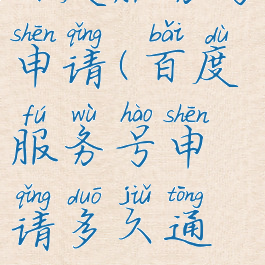 shēn qǐng bǎi dù
申请(百度
fú wù hào shēn
服务号申
qǐng duō jiǔ tōng
请多久通